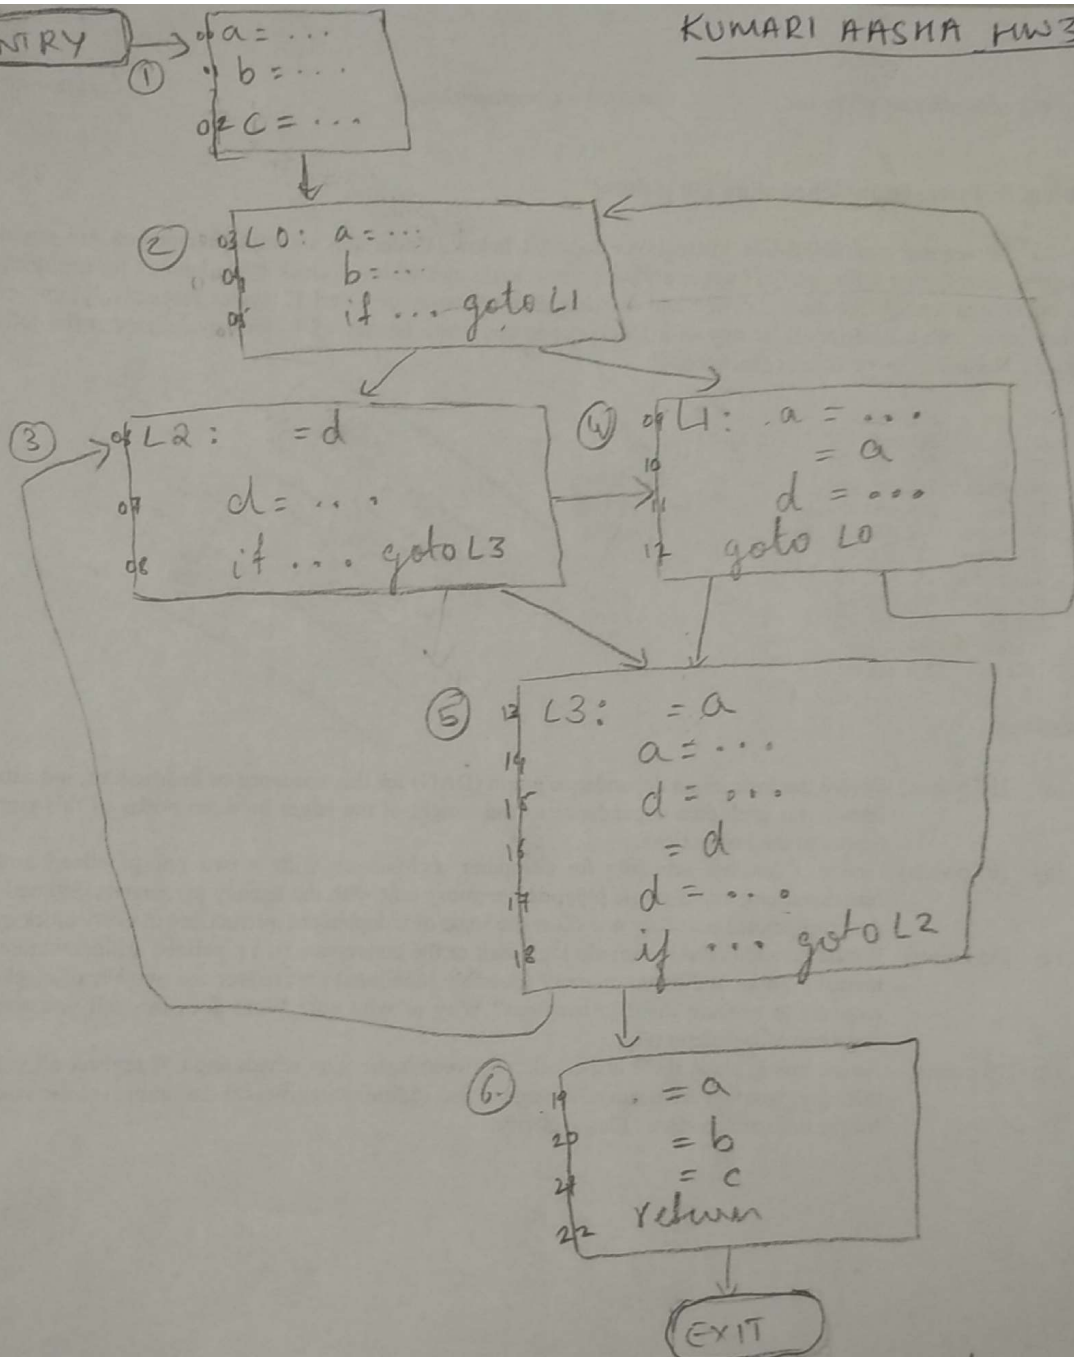 NTRY
KUMARI AASHA HW3
①
00 a = ...
b = ...
02 c = ...
②
03 L0: a = ...
04 b = ...
05 if ... goto L1
③
06 L2: = d
07 d = ...
08 if ... goto L3
④
09 L1: a = ...
10 = a
11 d = ...
12 goto L0
⑤
13 L3: = a
14 a = ...
15 d = ...
16 = d
17 d = ...
18 if ... goto L2
⑥
19 = a
20 = b
21 = c
22 return
EXIT